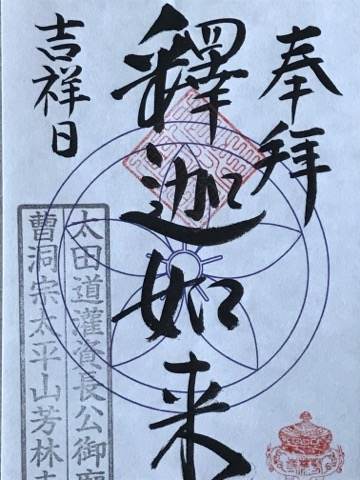 奉拝
釋迦如来
吉祥日
太田道灌資長公御廟
曹洞宗太平山芳林寺